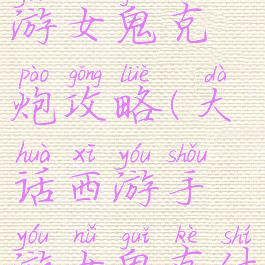 游女鬼克
pào gōng lüè dà
炮攻略(大
huà xī yóu shǒu
话西游手
yóu nǚ guǐ kè shí